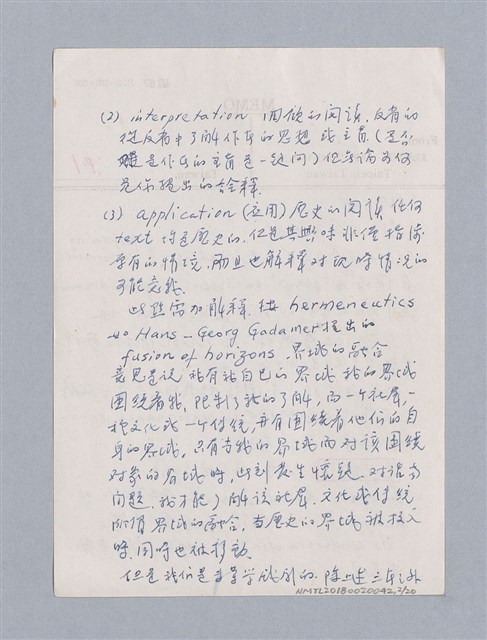 (2) interpretation 回顧的閱讀，反省的
從反省中了解作者的思想或主旨（是否
是作者的主旨是一疑問）但無論如何
是你提出的詮釋
(3) application（应用）歷史的閱讀 任何
text 均是歷史的，但是其興味非僅指涉
原有的情境，而且也解釋对现時情况的
可能意義
此點需加解釋，hermeneutics
如 Hans-Georg Gadamer 提出的
fusion of horizons. 界域的融合
意思是说 我有我自己的界域 我的界域
圍绕着我，限制了我的了解，而一个社區，一
种文化或一个传统，亦有圍绕着他们的自
身的界域，只有当我的界域面对該圍绕
对象的界域時，此刻发生懷疑、对话与
问题，我才能了解該社區、文化或传统
所謂界域的融合，当歷史的界域被投入
時，同時也被移動。
但是我们是 文学 的，除上述三点之外
NMTL20180020042, 2/20